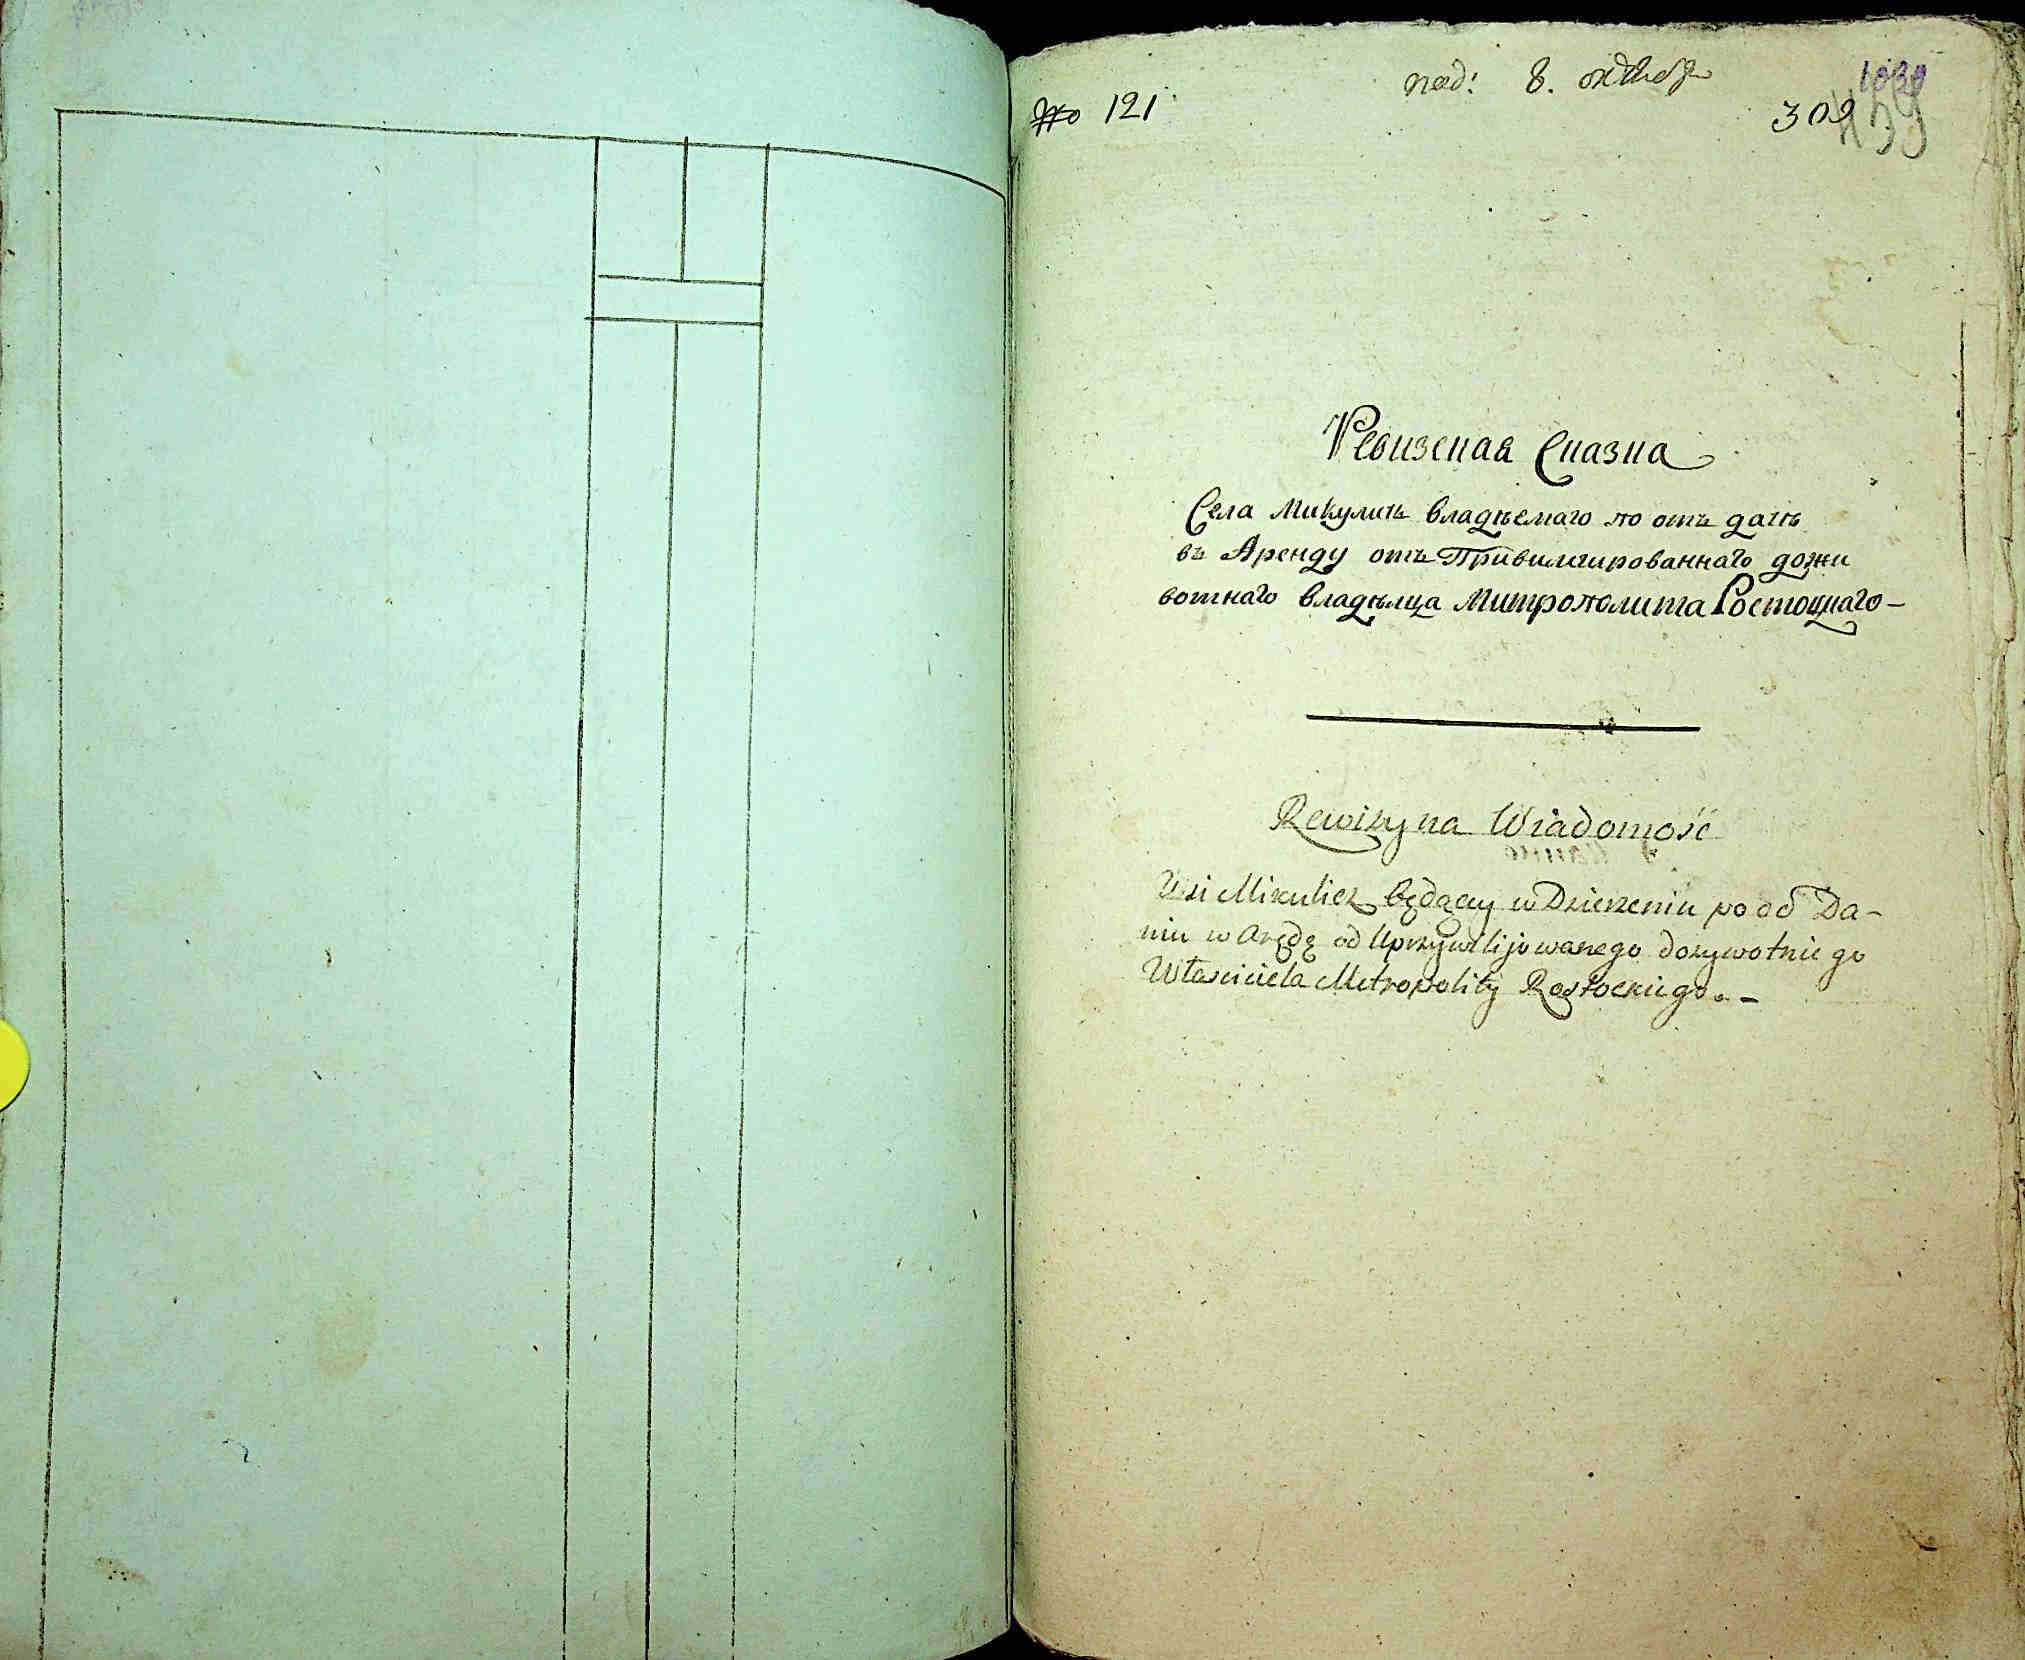 № 121
под: 8. октября
1039
309
Ревизская Сказка
Села Микуличъ владѣемаго по отъ дачѣ
въ Аренду отъ Привилигированнаго дожи
вотнаго владѣлца Митрополита Ростоцкаго–
Rewizyna Wiadomość
Wsi Mikulicz będącey w Dzierzeniu po od Da–
niu w Arędę od Uprzywilijowanego dozywotniego
Własciciela Metropolity Rostockiego.–